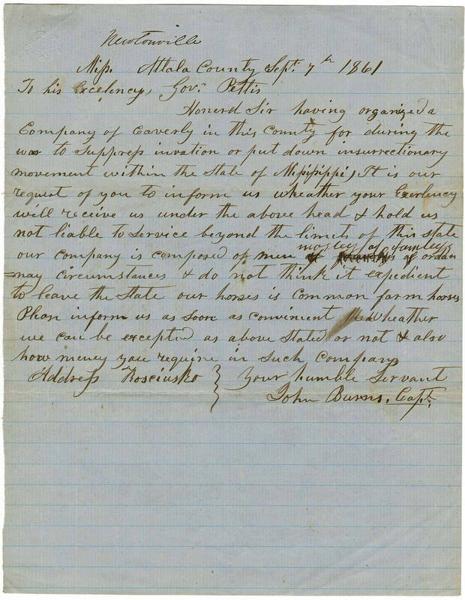 Newtonville
Miss. Attala County Sept. 7th 1861
To his Excelency, Gov. Pettis
Honerd Sir having organized a
Company of Caverly in this County for during the
war to Suppress invation or put down insurrectionary
movement within the State of Mississippi, It is our
request of you to inform us wheather your Excelency
will receive us under the above head & hold us
not liable to Service beyond the limits of this state
our company is composed of men mostly of familys of ordin
nary circumstances & do not think it expedient
to leave the State our horses is common farm horses
Pleas inform us as soon as convenient wheather
we can be excepted as above Stated or not & also
how meney you require in Such Company
Address Kosciusko } Your humble Servant
John Burns, Capt.